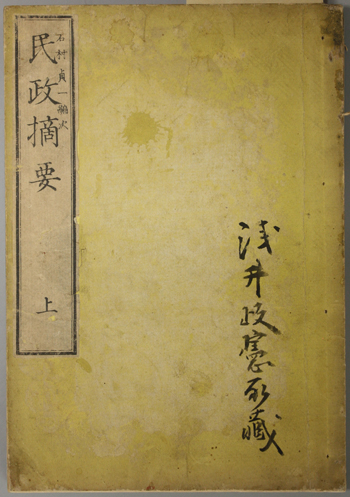 浅井政憲所藏
石村貞一編次
民政摘要 上